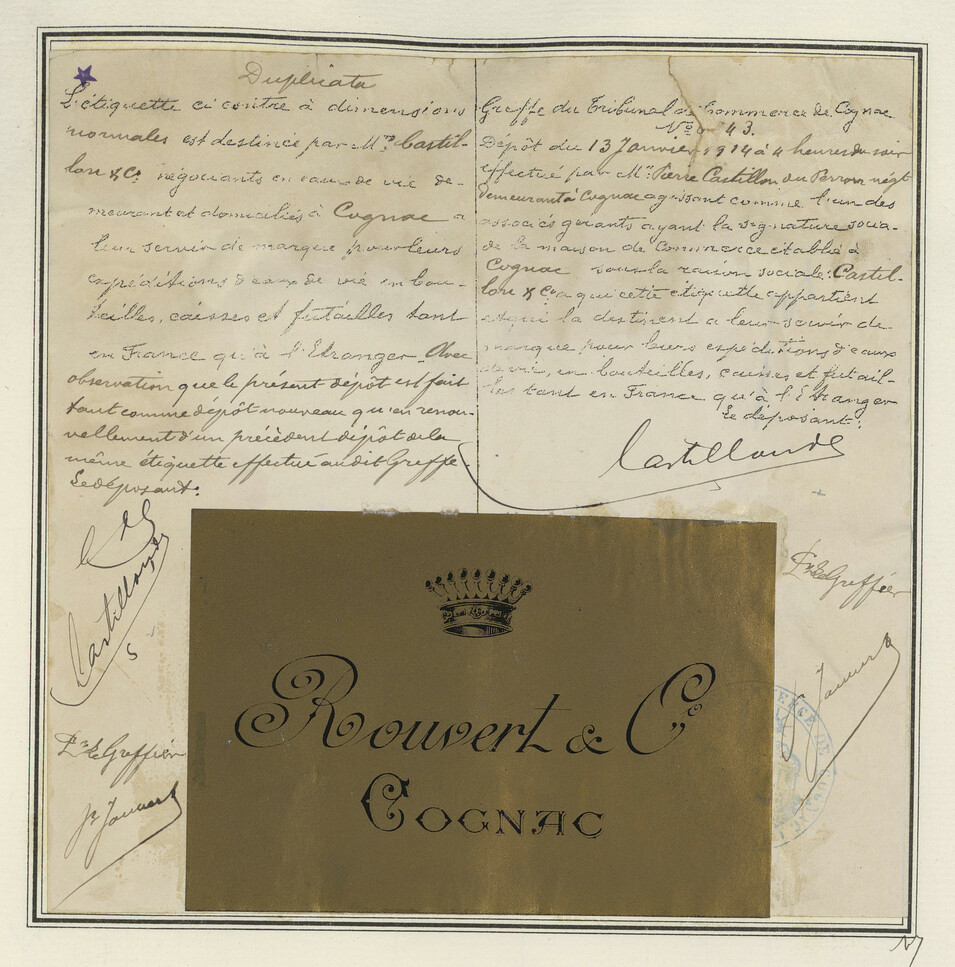 Duplicata
L'étiquette ci contre à dimensions
normales est destinée par Mrs Castil-
lon & Co négociants en eaux de vie de-
meurant et domiciliés à Cognac a
leur servir de marque pour leurs
expéditions d'eaux de vie en bou-
teilles, caisses et futailles tant
en France qu'à l'Etranger. Avec
observation que le présent dépôt est fait
tant comme dépôt nouveau qu'en renou-
vellement d'un précédent dépôt de la
même étiquette effectué au dit Greffe.
Le déposant:
Castillon
Pr le Greffier
Greffe du Tribunal de Commerce de Cognac
No 43.
Dépôt du 13 Janvier 1914 à 4 heures du soir
effectué par Mr Pierre Castillon du Perron négt
demeurant à Cognac agissant comme l'un des
associés gérants ayant la signature socia-
le de la maison de Commerce établie à
Cognac sous la raison sociale: Castil-
lon & Co a qui cette étiquette appartient
et qui la destinent a leur servir de
marque pour leurs expéditions d'eaux
de vie, en bouteilles, caisses et futail-
les tant en France qu'à l'Etranger
Le déposant:
Castillon
Pr le Greffier
Rouvert & Co
COGNAC